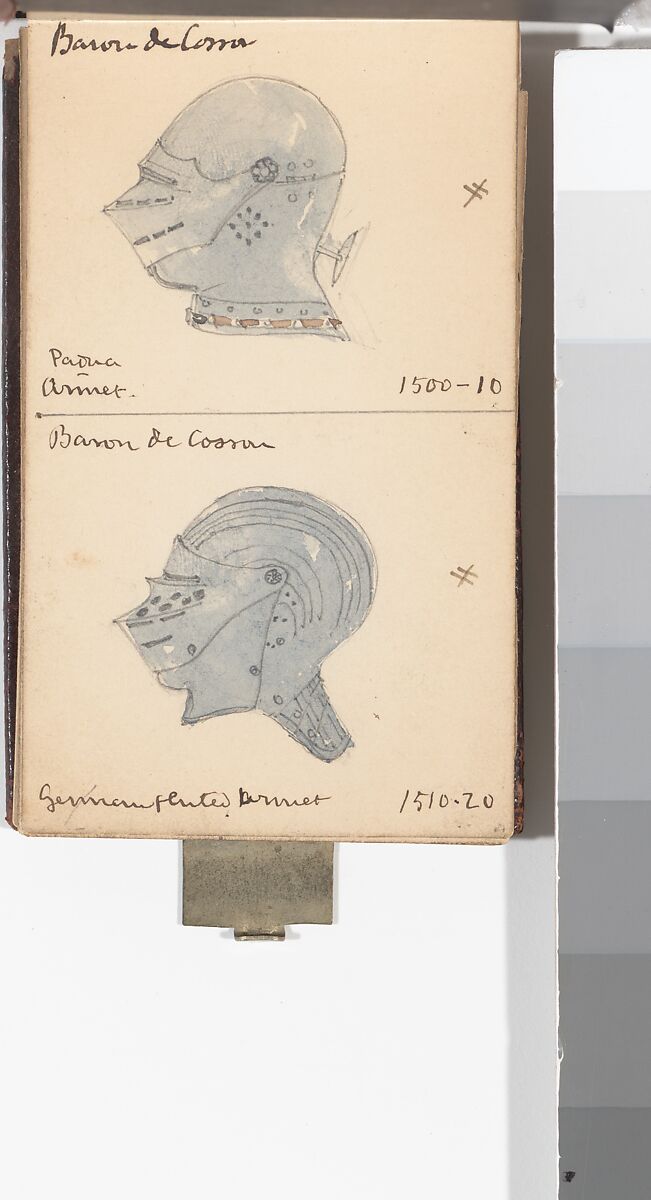 Baron de Cosson
Padua
Armet.
1500-10
Baron de Cosson
German fluted Armet
1510.20